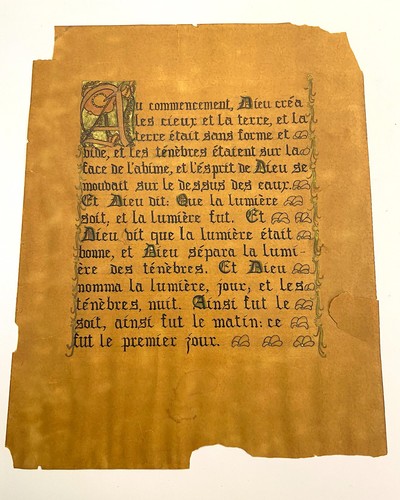 Au commencement, Dieu créa
les cieux et la terre, et la
terre était sans forme et
vide, et les ténèbres étaient sur la
face de l'abîme, et l'ésprit de Dieu se
mouvait sur le dessus des eaux.
Et Dieu dit: Que la lumière
soit, et la lumière fut. Et
Dieu vit que la lumière était
bonne, et Dieu sépara la lumi-
ère des ténèbres. Et Dieu
nomma la lumière, jour, et les
ténèbres, nuit. Ainsi fut le
soit, ainsi fut le matin: ce
fut le premier jour.